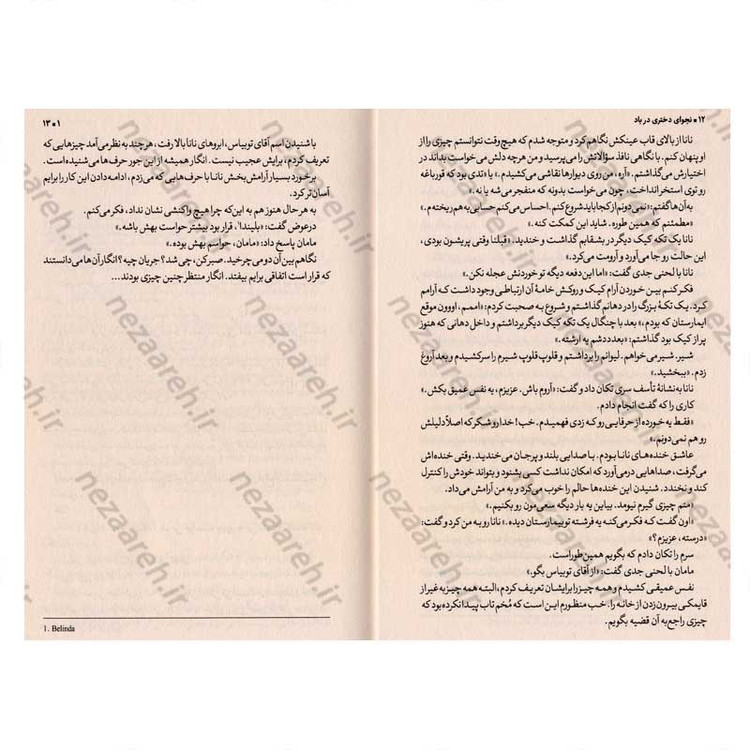 ۱۲ ● نجوای دختری در باد
نانا از بالای قاب عینکش نگاهم کرد و متوجه شدم که هیچ‌وقت نتوانستم چیزی را از
او پنهان کنم. با نگاهی نافذ سؤالاتش را می‌پرسید و من هرچه دلش می‌خواست بداند در
اختیارش می‌گذاشتم. «آره، من روی دیوارها نقاشی می‌کشیدم.» یا «تدی بود که قورباغه
رو توی استخر انداخت، چون می‌خواست بدونه که منفجر می‌شه یا نه.»
به آن‌ها گفتم: «نمی‌دونم از کجا باید شروع کنم. احساس می‌کنم حسابی به‌هم ریخته‌م.»
«مطمئنم که همین طوره. شاید این کمکت کنه.»
نانا یک تکه کیک دیگر در بشقابم گذاشت و خندید. «قبلنا وقتی پریشون بودی،
این حالت رو جا می‌آورد و آرومت می‌کرد.»
نانا با لحنی جدی گفت: «اما این دفعه دیگه تو خوردنش عجله نکن.»
فکر کنم بین خوردن آرام کیک و روکش خامهٔ آن ارتباطی وجود داشت که آرامم
کرد. یک تکهٔ بزرگ را در دهانم گذاشتم و شروع به صحبت کردم: «اممم، اووون موقع
ایمارستان که بودم،» بعد با چنگال یک تکه کیک دیگر برداشتم و داخل دهانی که هنوز
پر از کیک بود گذاشتم: «بعد ددشم یه ارشته.»
شیر. شیر می‌خواهم. لیوانم را برداشتم و قلوپ قلوپ شیرم را سر کشیدم و بعد آروغ
زدم. «ببخشید.»
نانا به نشانهٔ تأسف سری تکان داد و گفت: «آروم باش. عزیزم، یه نفس عمیق بکش.»
کاری را که گفت انجام دادم.
«فقط یه خورده از حرفایی رو که زدی فهمیدم. خب! خدا رو شکر که اصلاً دلیلش
رو هم نمی‌دونم.»
عاشق خنده‌های نانا بودم. با صدایی بلند و پرجان می‌خندید. وقتی خنده‌اش
می‌گرفت، صداهایی درمی‌آورد که امکان نداشت کسی بشنود و بتواند خودش را کنترل
کند و نخندد. شنیدن این خنده‌ها حالم را خوب می‌کرد و به من آرامش می‌داد.
«منم چیزی گیرم نیومد. بیا این یه بار دیگه سعی‌مون رو بکنیم.»
«اون گفت که فکر می‌کنه یه فرشته تو بیمارستان دیده.» نانا رو به من کرد و گفت:
«درسته، عزیزم؟»
سرم را تکان دادم که بگویم همین طور است.
مامان با لحنی جدی گفت: «از آقای توبیاس بگو.»
نفس عمیقی کشیدم و همه چیز را برایشان تعریف کردم، البته همه چیز به غیر از
قایمکی بیرون زدن از خانه را. خب منظورم این است که مُخم تاب پیدا نکرده بود که
چیزی راجع به آن قضیه بگویم.
۱ ● ۱۳
با شنیدن اسم آقای توبیاس، ابروهای نانا بالا رفت، هرچند به نظر می‌آمد چیزهایی که
تعریف کردم، برایش عجیب نیست. انگار همیشه از این جور حرف‌ها می‌شنیده است.
برخورد بسیار آرامش‌بخش نانا با حرف‌هایی که می‌زدم، ادامه دادن این کار را برایم
آسان‌تر کرد.
به هر حال هنوز هم به این‌که چرا هیچ واکنشی نشان نداد، فکر می‌کنم.
درعوض گفت: «بلیندا¹، قرار بود بیشتر حواست بهش باشه.»
مامان پاسخ داد: «مامان، حواسم بهش بوده.»
نگاهم بین آن دو می‌چرخید. صبر کن، چی شد؟ جریان چیه؟ انگار آن‌ها می‌دانستند
که قرار است اتفاقی برایم بیفتد. انگار منتظر چنین چیزی بودند...
1. Belinda
nezaareh.ir